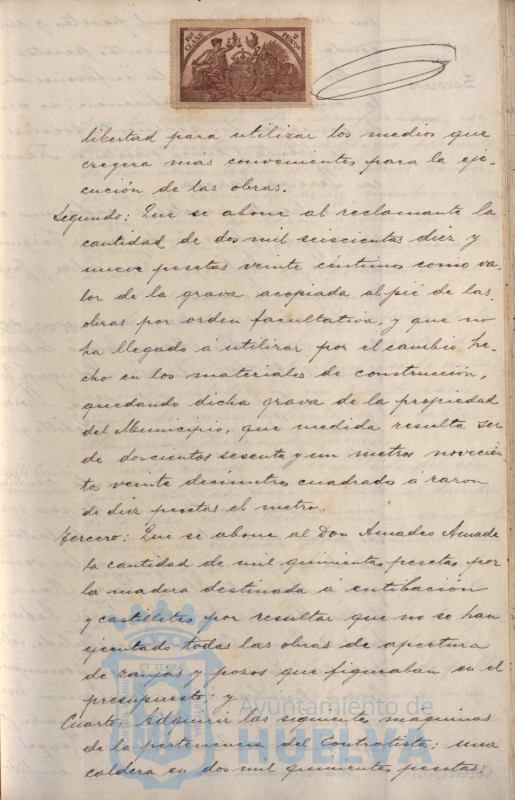 10ª CLASE
2 PESETAS
libertad para utilizar los medios que
creyera mas convenientes para la eje-
cución de las obras.
Segundo: Que se abone al reclamante la
cantidad de dos mil seiscientas diez y
nueve pesetas veinte céntimos como va-
lor de la grava acopiada al pié de las
obras por orden facultativa y que no
ha llegado á utilizar por el cambio he-
cho en los materiales de construcción,
quedando dicha grava de la propiedad
del Municipio, que medida resulta ser
de doscientos sesenta y un metros novecien-
to veinte decímetros cuadrados á razon
de diez pesetas el metro.
Tercero: Que se abone al Don Amadeo Amade
la cantidad de mil quinientas pesetas por
la madera destinada á entibación
y castilletes por resultar que no se han
ejecutado todas las obras de apertura
de zanjas y pozos que figuraban en el
presupuesto; y
Cuarto: Adquirir las siguientes maquinas
de la pertenencia del Contratista: una
caldera en dos mil quinientas pesetas:
Ayuntamiento de
HUELVA